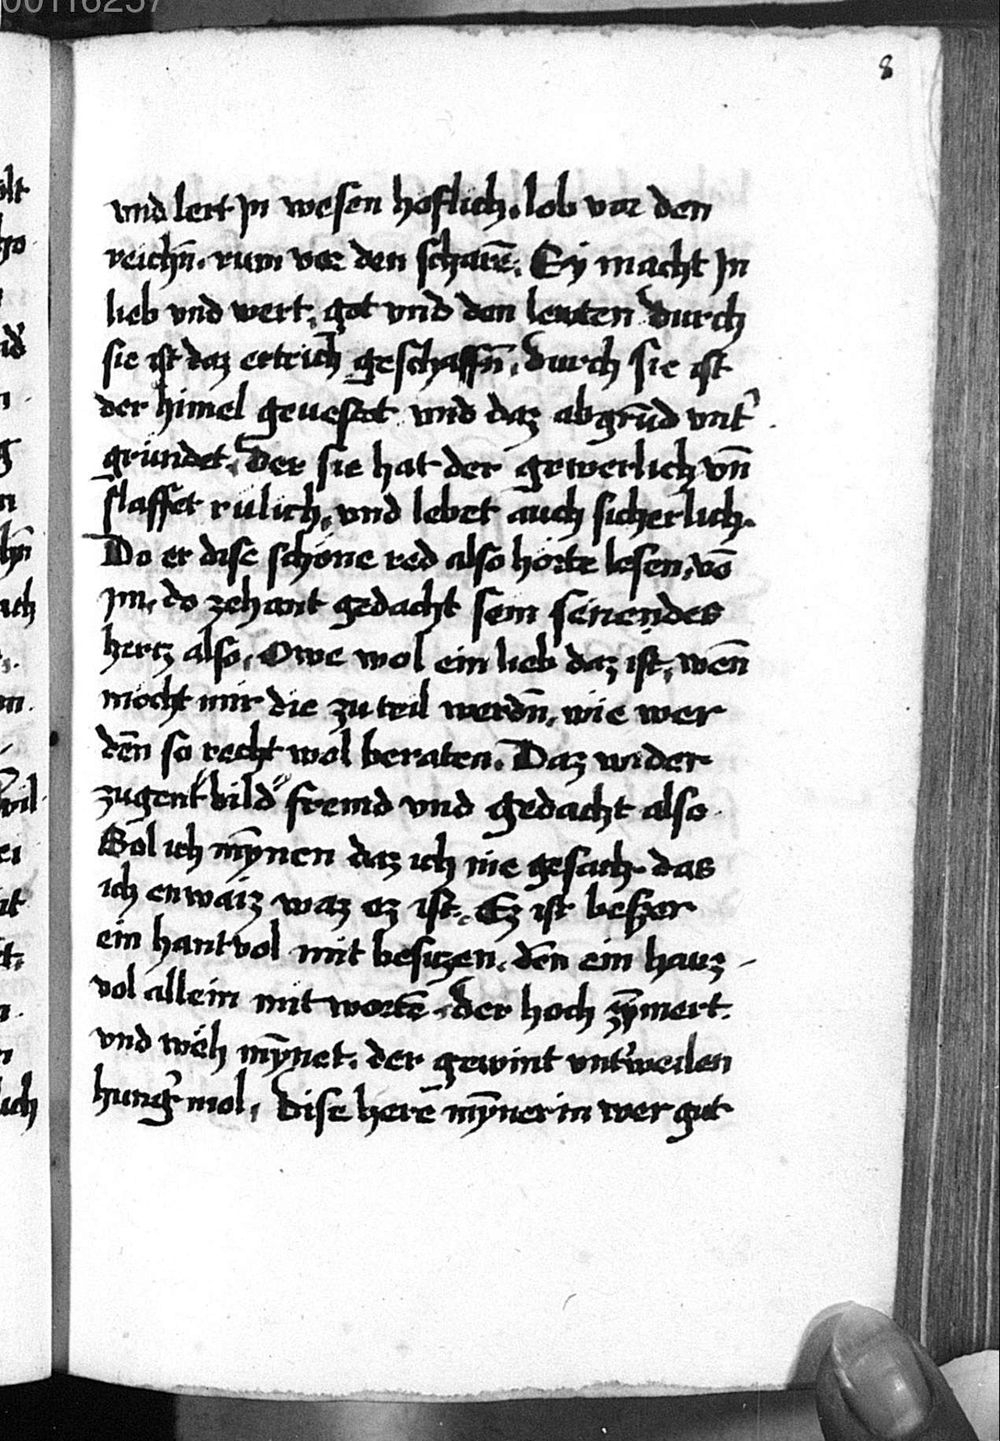 00116257
8
vnd lert jn wesen hoflich. lob vor den
reichn̄. rum vor den scharē. Ey macht jn
lieb vnd wert. got vnd den leuten durch
sie ist daz ertrich geschaffn̄. durch sie ist
der himel geuestet vnd daz abgrūd vnt᾽
gründet. Der sie hat der gewerlich vn̄
slaffet rulich. vnd lebet auch sicherlich.
Do er dise schöne red also horte lesen. vō
jm. do zehant gedacht sein senendes
hertz also. Owe wol ein lieb daz ist. wen̄
möcht mir die zu teil werdn̄. wie wer
den̄ so recht wol beraten. Daz wider
zugent bild fremd vnd gedacht also
Sol ich mȳnen daz ich nie gesach. das
ich enwaiz waz ez ist. Ez ist beszer
ein hantvol mit besitzen. den̄ ein hauz
vol allein mit wortē. der hoch zȳmert.
vnd wëh mȳnet. der gewint vnt᾽weilen
hung᾽ mol. Dise herē mȳnerin wer gut